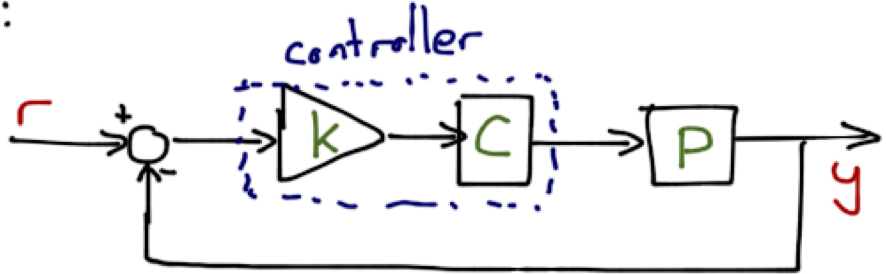 :
controller
r + k C P
-
y